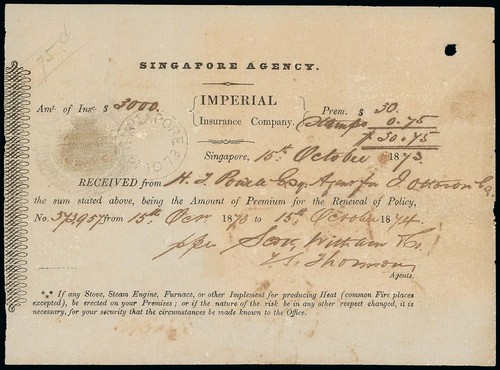 75 d
SINGAPORE AGENCY.
Amt. of Ins. $ 3000. IMPERIAL Insurance Company. Prem. $ 30.
Stamps 0.75
$ 30.75
SINGAPORE
Singapore, 15th October 1873.
RECEIVED from H. T. Powell Esq. Agent for J.
the sum stated above, being the Amount of Premium for the Renewal of Policy,
No. 573957 from 15th Octr. 1873 to 15th October 1874.
pper Scott Witham & Co.
Thomson
Agents.
*** If any Stove, Steam Engine, Furnace, or other Implement for producing Heat (common Fire places
excepted), be erected on your Premises; or if the nature of the risk be in any other respect changed, it is
necessary, for your security that the circumstances be made known to the Office.